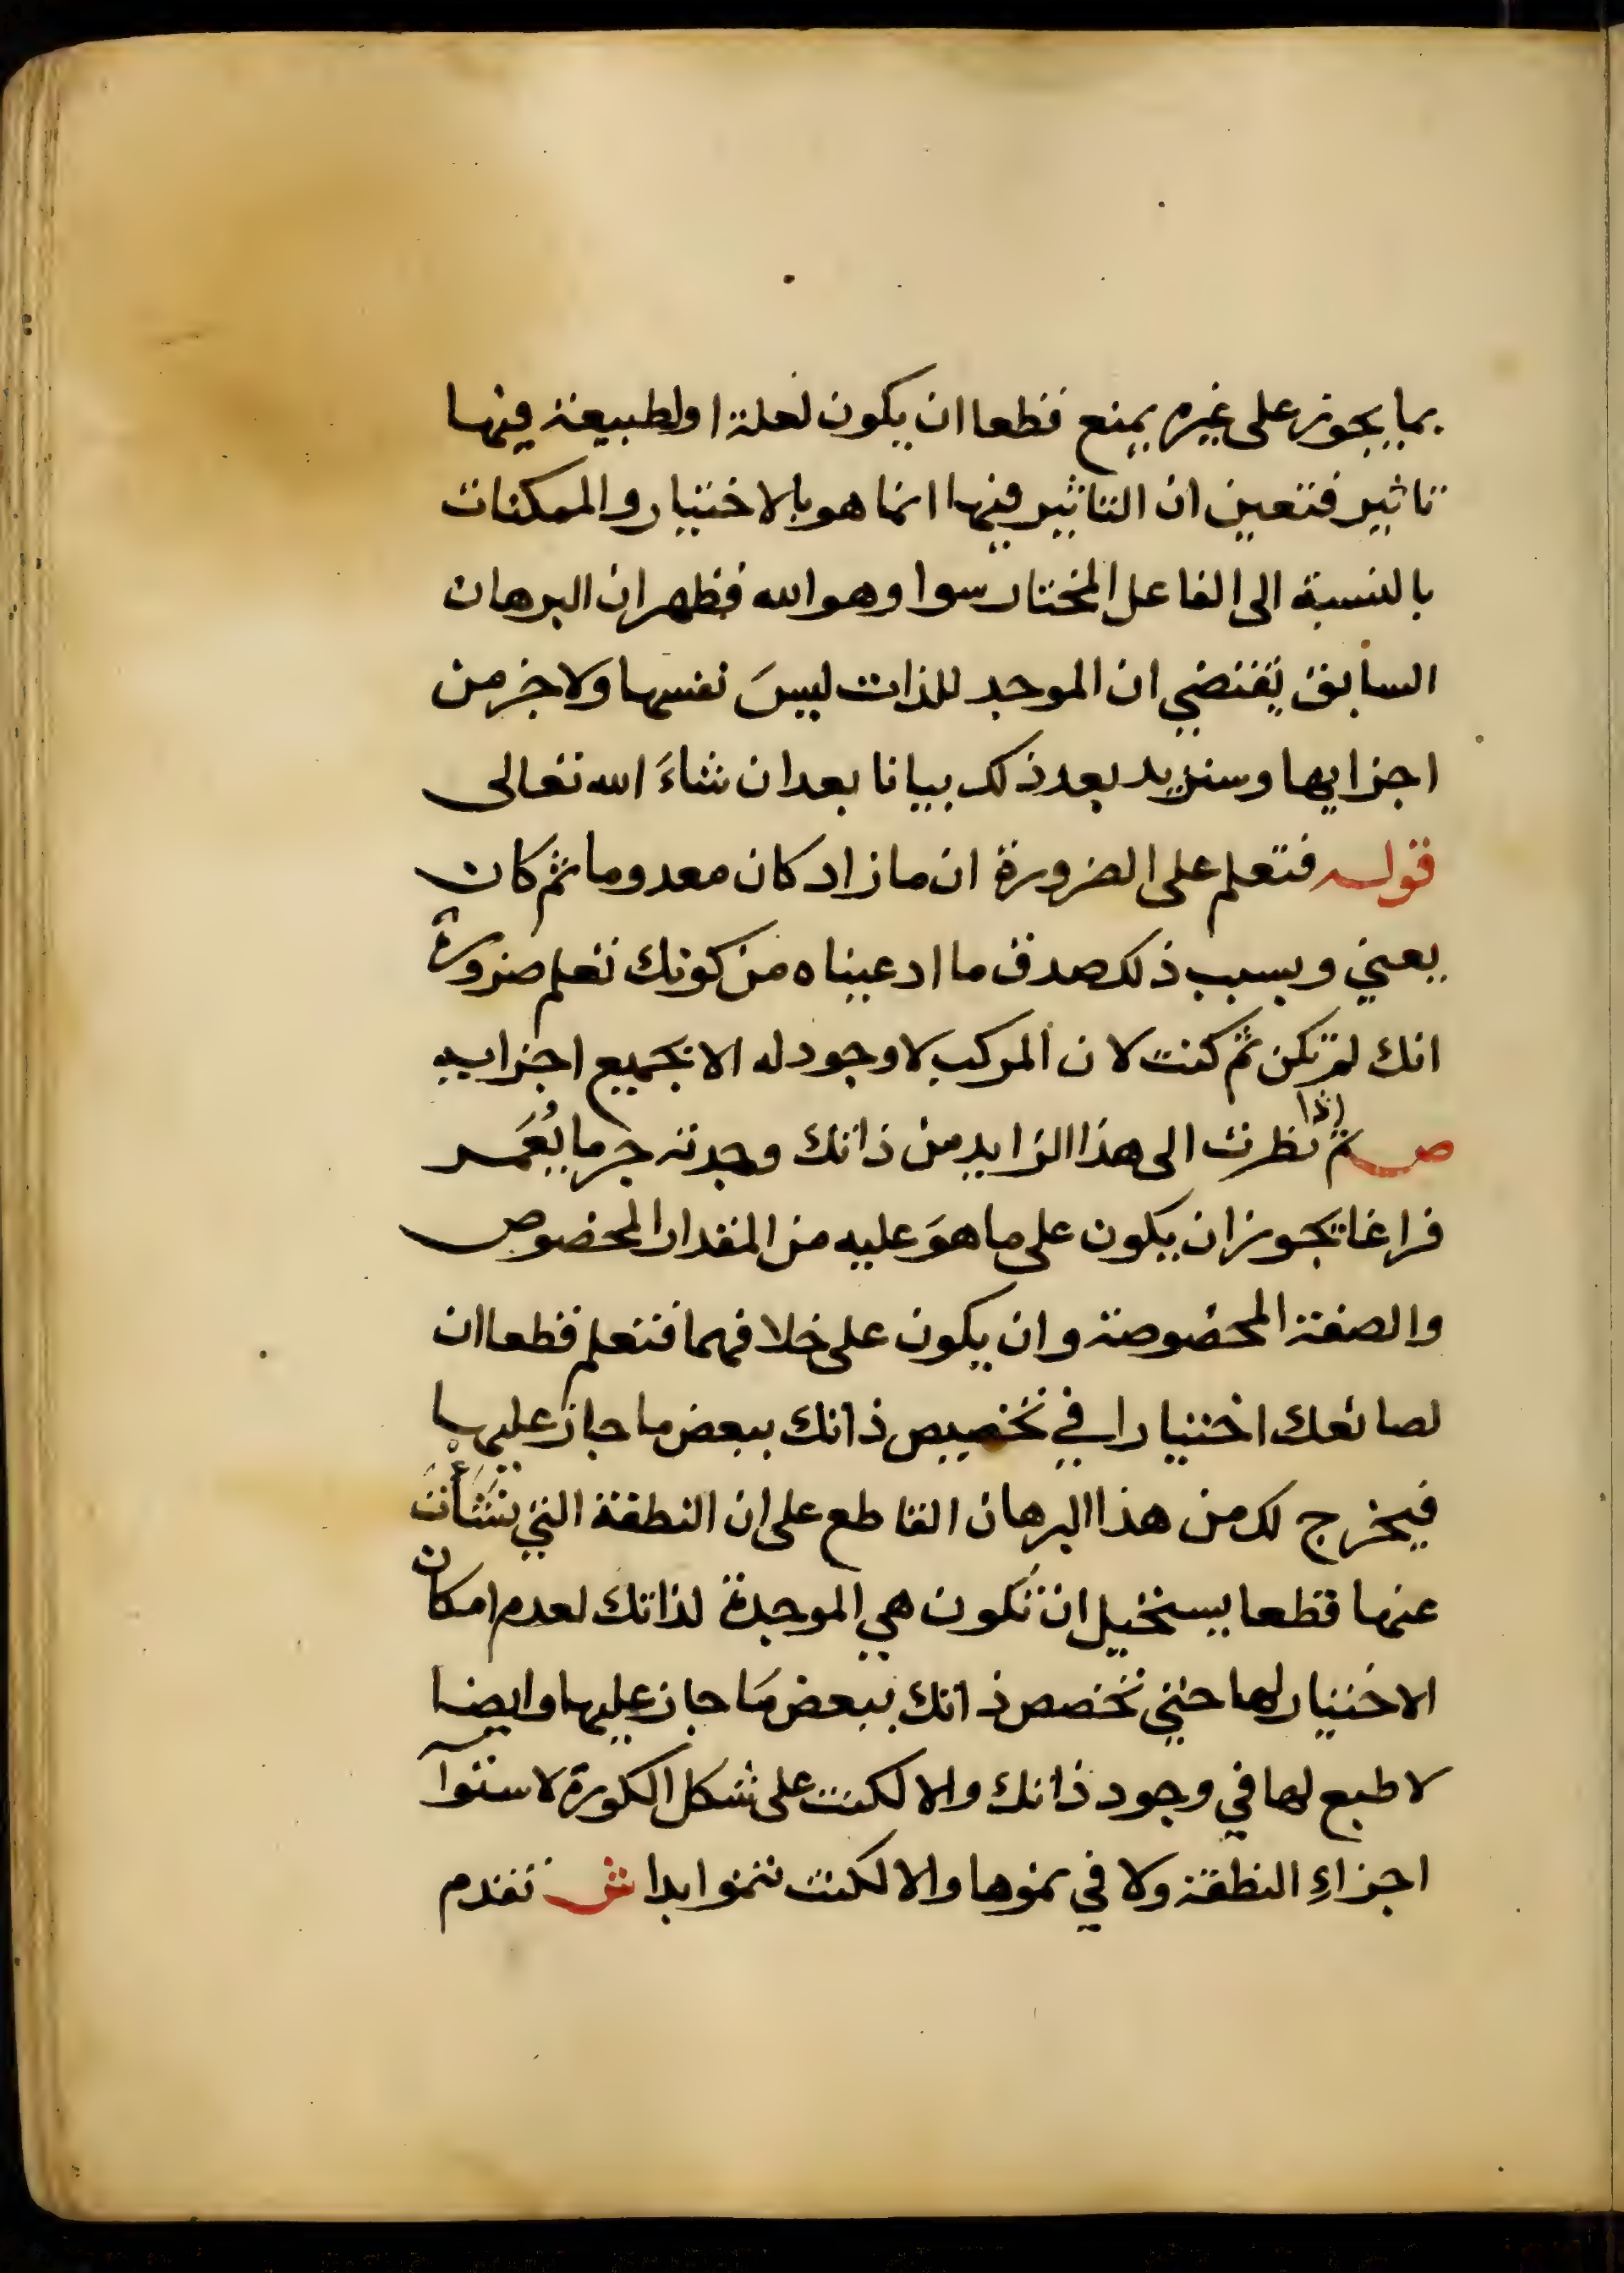 بما يجوز على غيره يمنع قطعا ان يكون لعلة او لطبيعة فيها
تاثير فتعين ان التاثير فيها انما هو بالاختيار والممكنات
بالنسبة الى الفاعل المختار سوا وهو الله فظهر ان البرهان
السابق يقتضي ان الموجد للذات ليسَ نفسها ولا جز من
اجزايها وسنزيد بعد ذلك بيانا بعد ان شاءَ الله تعالى
قوله فتعلم على الضرورة ان ما زاد كان معدوما ثم كان
يعني وبسبب ذلك صدق ما ادعيناه من كونك تعلم ضرورة
انك لم تكن ثم كنت لان المركب لا وجود له الا بجميع اجزايه
ص ثم اذا نظرت الى هذا الزايد من ذاتك وجدته جرما يُعَمر
فراغا يجوز ان يكون على ما هوَ عليه من المقدار المخصوص
والصفة المخصوصة وان يكون على خلافهما فتعلم قطعا ان
لصانعك اختيارا في تخصيص ذاتك ببعض ما جاز عليها
فيخرج لك من هذا البرهان القاطع على ان النطفة التي نَشَأَتْ
عنها قطعا يستحيل ان تكون هي الموجدة لذاتك لعدم امكان
الاختيار لها حتى تخصص ذاتك ببعض مَا جاز عليها وايضا
لا طبع لها في وجود ذاتك والا لكنت على شكل الكورة لاستوآ
اجزاءِ النطفة ولا في نموها والا لكنت تنموا ابدا ش تقدم